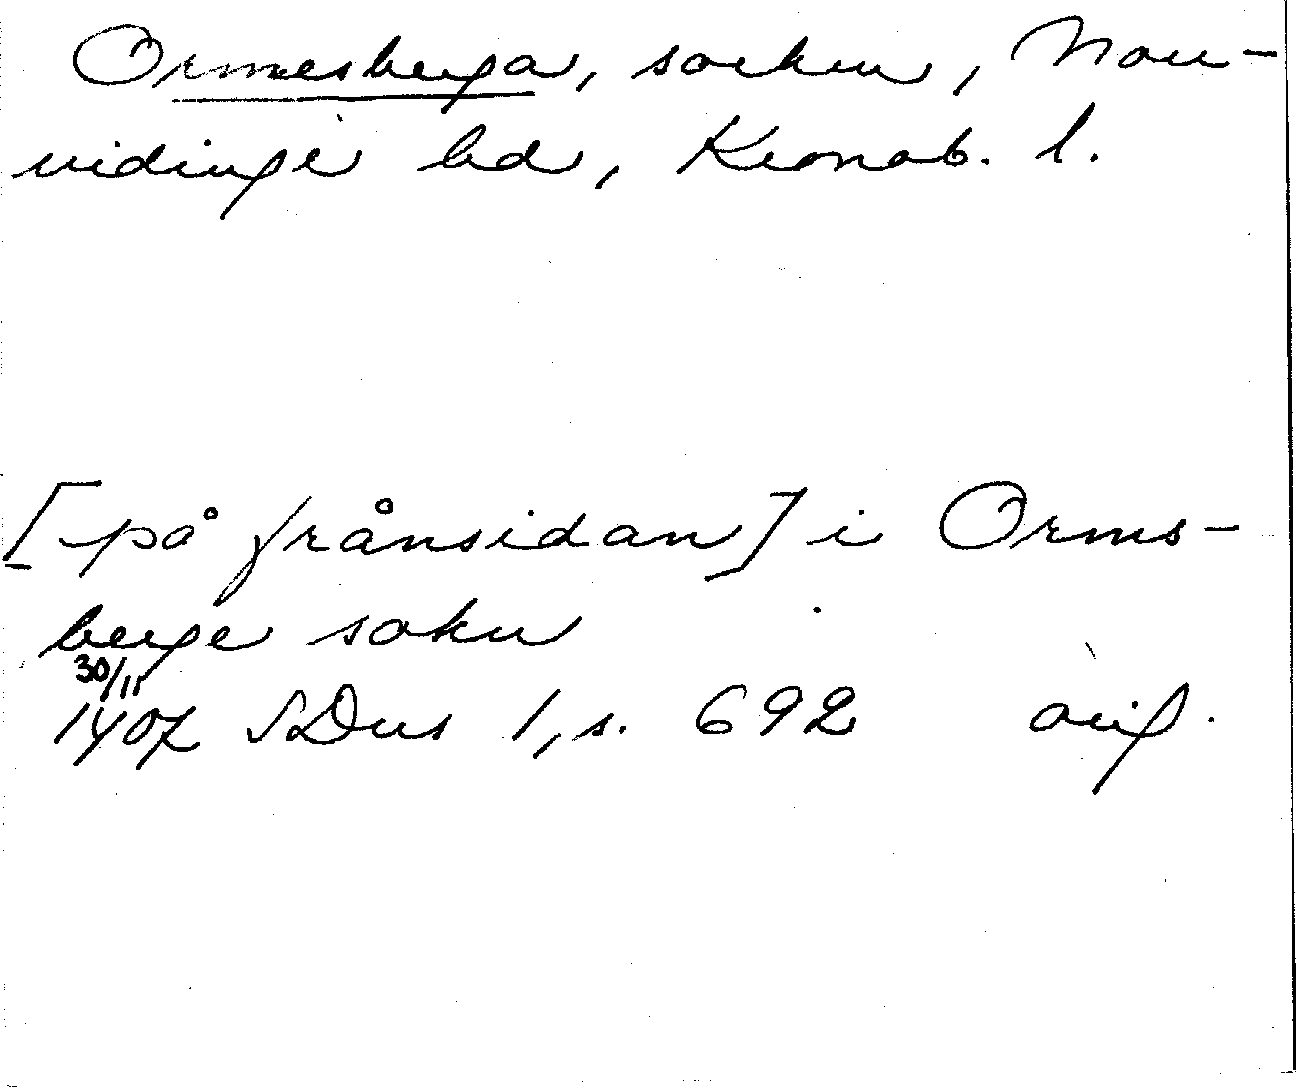 Ormesberga, socken, Norr-
vidinge hd, Kronob. l.
[på frånsidan] i Orms-
berge sokn
30/11
1407 SDns 1, s. 692 orig.